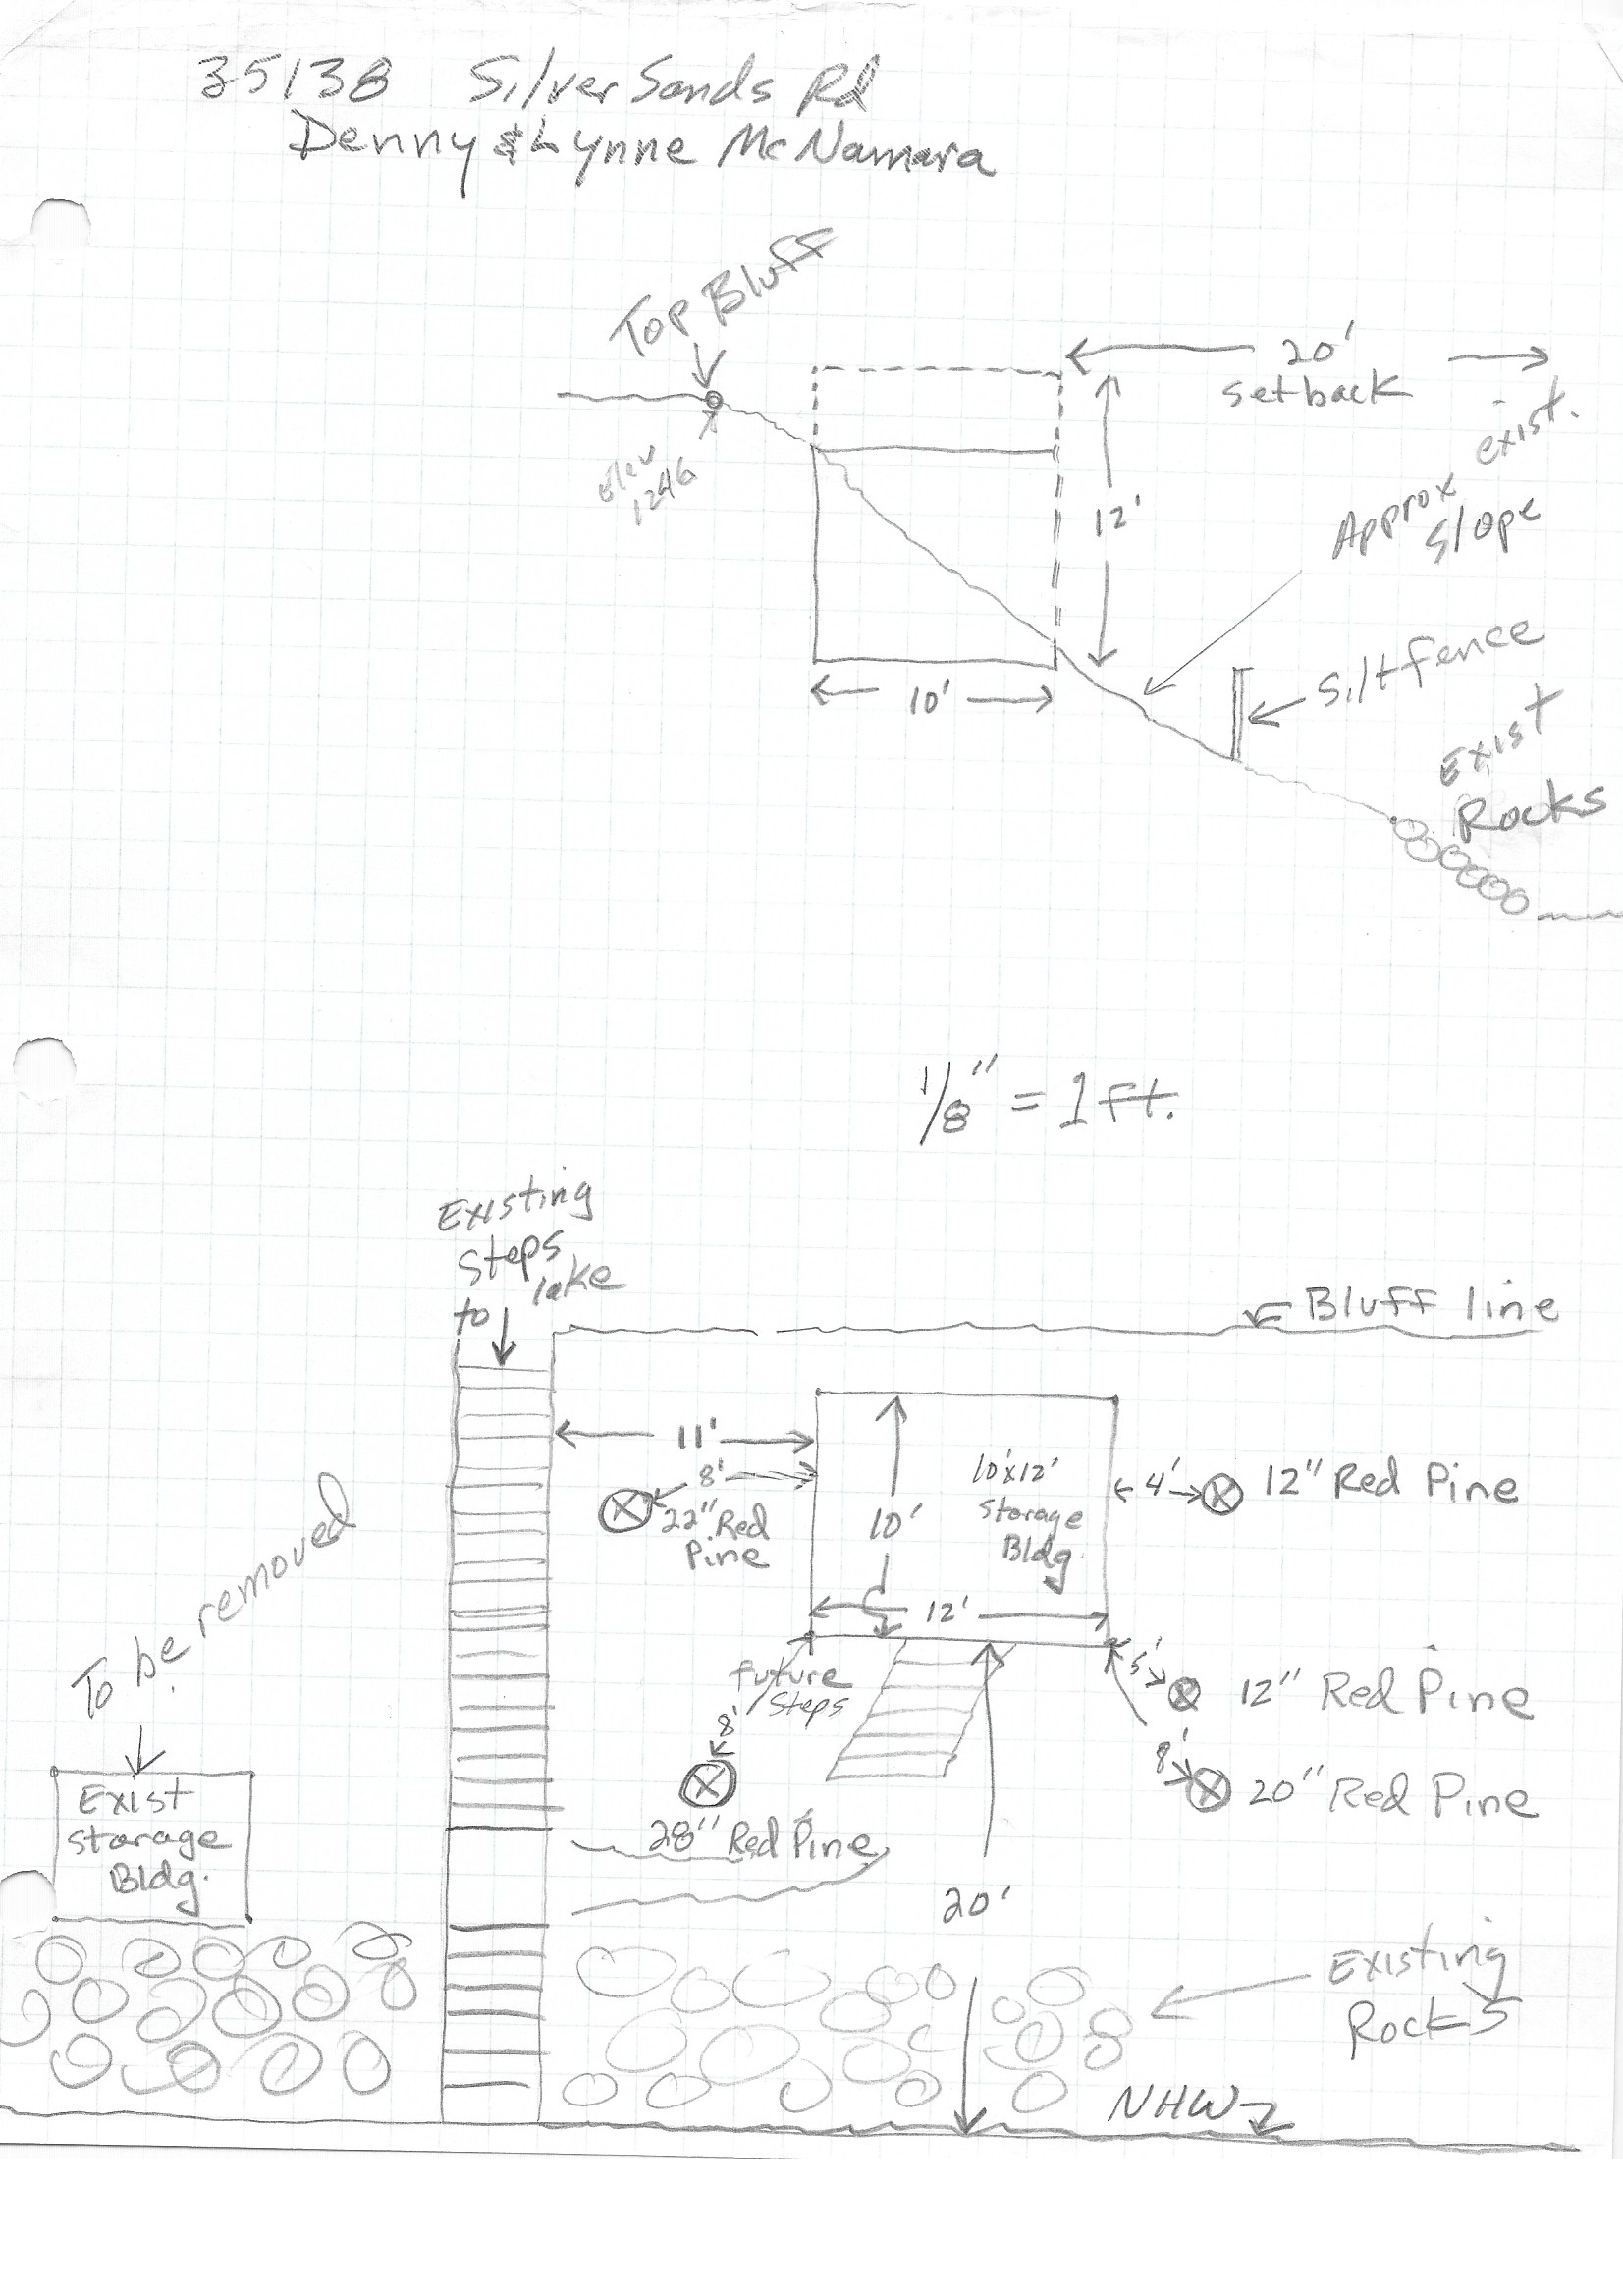 35138 Silver Sands Rd
Denny & Lynne McNamara
Top Bluff
Elev
1246
20'
setback
12'
exist.
Approx
slope
10'
Silt fence
Exist
Rocks
1/8" = 1 ft.
Existing
Steps
to lake
Bluff line
11'
8'
22" Red
Pine
10'
10'x12'
Storage
Bldg.
4'
12" Red Pine
12'
To be removed
future
Steps
5'
12" Red Pine
8'
8'
20" Red Pine
Exist
storage
Bldg.
28" Red Pine
20'
Existing
Rocks
NHW